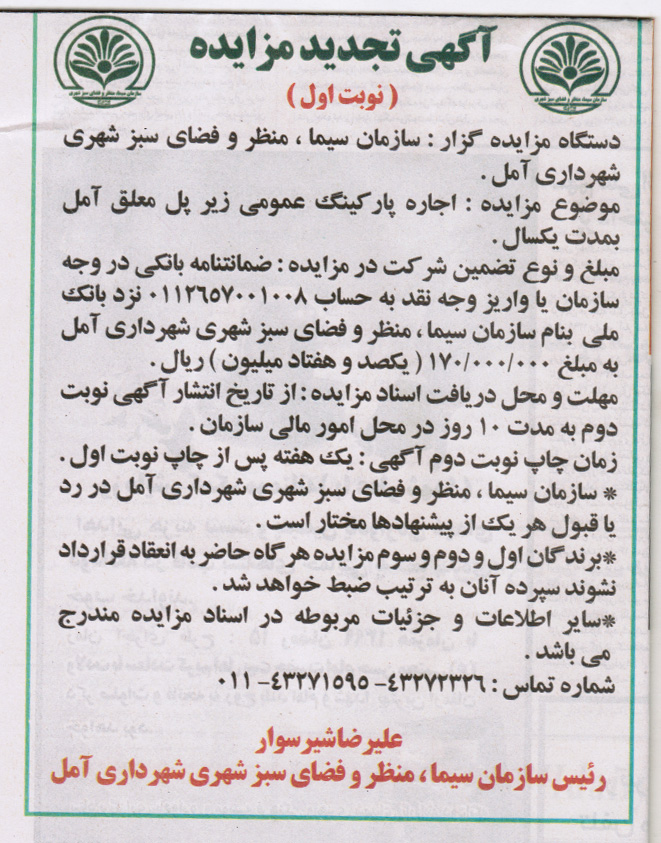 آگهی تجدید مزایده
( نوبت اول )
دستگاه مزایده گزار : سازمان سیما ، منظر و فضای سبز شهری
شهرداری آمل .
موضوع مزایده : اجاره پارکینگ عمومی زیر پل معلق آمل
بمدت یکسال .
مبلغ و نوع تضمین شرکت در مزایده : ضمانتنامه بانکی در وجه
سازمان یا واریز وجه نقد به حساب ۰۱۱۲۶۵۷۰۰۱۰۰۸ نزد بانک
ملی بنام سازمان سیما ، منظر و فضای سبز شهری شهرداری آمل
به مبلغ ۱۷۰/۰۰۰/۰۰۰ ( یکصد و هفتاد میلیون ) ریال .
مهلت و محل دریافت اسناد مزایده : از تاریخ انتشار آگهی نوبت
دوم به مدت ۱۰ روز در محل امور مالی سازمان .
زمان چاپ نوبت دوم آگهی : یک هفته پس از چاپ نوبت اول .
* سازمان سیما ، منظر و فضای سبز شهری شهرداری آمل در رد
یا قبول هر یک از پیشنهادها مختار است .
*برندگان اول و دوم و سوم مزایده هر گاه حاضر به انعقاد قرارداد
نشوند سپرده آنان به ترتیب ضبط خواهد شد .
*سایر اطلاعات و جزئیات مربوطه در اسناد مزایده مندرج
می باشد .
شماره تماس : ۴۳۲۷۲۳۲۶- ۴۳۲۷۱۵۹۵- ۰۱۱
علیرضا شیرسوار
رئیس سازمان سیما ، منظر و فضای سبز شهری شهرداری آمل